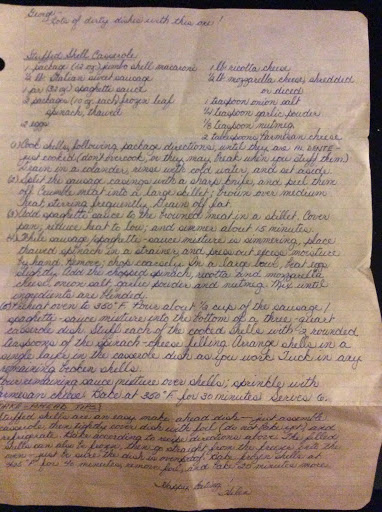 Georgi -
Lots of dirty dishes with this one!
Stuffed Shell Casserole
1 package (12 oz.) jumbo shell macaroni
½ lb. Italian sweet sausage
1 jar (32 oz) spaghetti sauce
2 packages (10 oz. each) frozen leaf
spinach, thawed
2 eggs
1 lb ricotta cheese
½ lb mozzarella cheese, shredded
or diced
1 teaspoon onion salt
¼ teaspoon garlic powder
⅛ teaspoon nutmeg
2 tablespoons Parmesan cheese
① Cook shells, following package directions, until they are AL DENTE -
just cooked (don't overcook, or they may break when you stuff them)
Drain in a colander, rinse with cold water, and set aside.
② Split the sausage casings with a sharp knife and peel them
off. Crumble meat into a large skillet; brown over medium
heat stirring frequently. Drain off fat.
③ Add spaghetti sauce to the browned meat in a skillet. Cover
pan, reduce heat to low; and simmer about 15 minutes.
④ While sausage/spaghetti-sauce mixture is simmering, place
thawed spinach in a strainer, and press out excess moisture
by hand. Remove; chop coarsely. In a large bowl, beat eggs
slightly. Add the chopped spinach, ricotta and mozzarella
cheese, onion salt, garlic powder and nutmeg. Mix until
ingredients are blended.
⑤ Preheat oven to 350°F. Pour about ½ cup of the sausage/
spaghetti-sauce mixture into the bottom of a three-quart
casserole dish. Stuff each of the cooked shells with 2 rounded
teaspoons of the spinach-cheese filling. Arrange shells in a
single layer in the casserole dish as you work. Tuck in any
remaining broken shells.
Pour remaining sauce mixture over shells; sprinkle with
Parmesan cheese. Bake at 350°F for 30 minutes. Serves 6.
MAKE-AHEAD TIPS:
Stuffed shells are an easy make-ahead dish - just assemble
casserole, then tightly cover dish with foil (do not bake yet) and
refrigerate. Bake according to recipe directions above. The filled
shells can also be frozen, then go straight from the freezer into the
oven - just be sure the dish is ovenproof. Bake frozen shells at
for 40 minutes, remove foil, and bake 20 minutes more.
Happy Eating